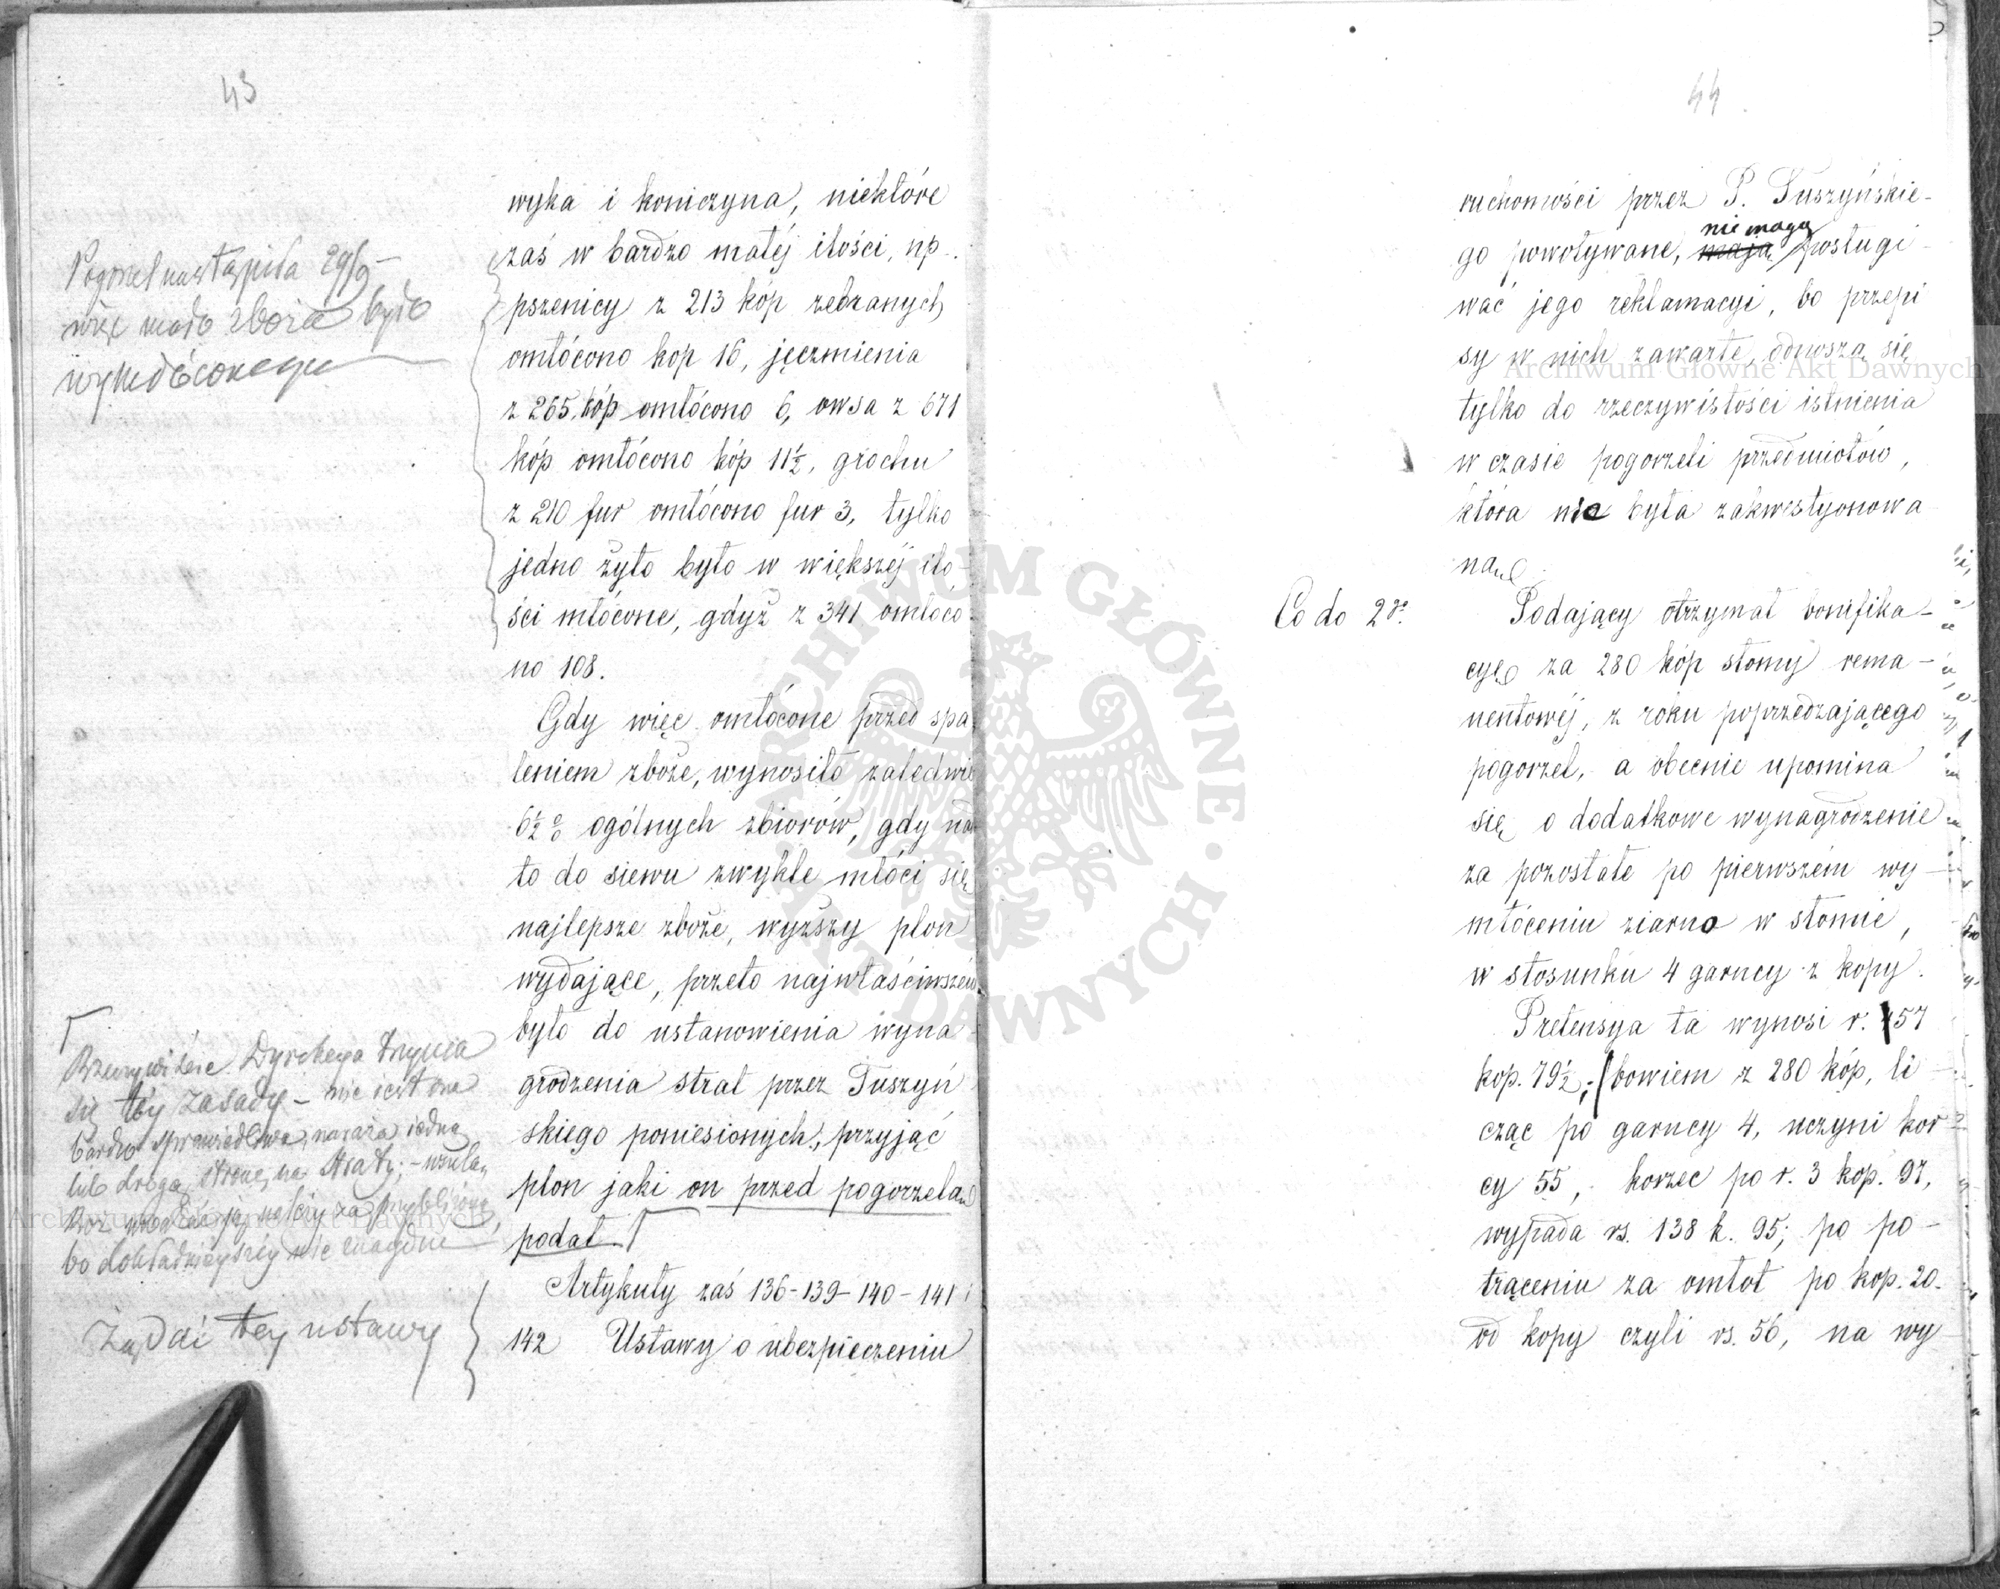 43
Pogorzel nastąpiła 29/9 –
więc mało zboża było
wymłóconego
wyka i koniczyna, niektóre
zaś w bardzo małéj ilości, np.
pszenicy z 213 kóp zebranych
omłócono kop 16, jęczmienia
z 265 kóp omłócono 6, owsa z 671
kóp omłócono kóp 11½, grochu
z 210 fur omłócono fur 3, tylko
jedno żyto było w większéj ilo-
ści młócone, gdyż z 341 omłóco-
no 108.
Gdy więc omłócone przed spa
leniem zboże, wynosiło zaledwie
6½ % ogólnych zbiorów, gdy nad
to do siewu zwykle młóci się
najlepsze zboże, wyższy plon
wydające, przeto najwłaściwszém
było do ustanowienia wyna
grodzenia strat przez Tuszyń
skiego poniesionych, przyjąć
plon jaki on przed pogorzelą
podał.
Artykuły zaś 136-139-140-141
142 Ustawy o ubezpieczeniu
Rzeczywiście Dyrekcya trzyma
się téj zasady – nie jest ona
bardzo sprawiedliwa, naraża jedną
lub drugą stronę na straty; –
bo dokładniejszéj nie
Żąda téj ustawy
44
ruchomości przez P. Tuszyńskie-
go powoływane, mają nie mogą posługi-
wać jego reklamacyi, bo przepi
sy w nich zawarte, odnoszą się
tylko do rzeczywistości istnienia
w czasie pogorzeli przedmiotów,
która nie była zakwestyonowa
ną.
Co do 2go
Podający otrzymał bonifika-
cyę za 280 kóp słomy rema-
nentowéj, z roku poprzedzającego
pogorzel, a obecnie upomina
się o dodatkowe wynagrodzenie
za pozostałe po pierwszém wy-
młóceniu ziarno w słomie,
w stosunku 4 garncy z kopy.
Pretensya ta wynosi r. 157
kop. 79½; bowiem z 280 kóp, li-
cząc po garncy 4, uczyni kor-
cy 55, korzec po r. 3 kop. 97,
wypada rs. 138 k. 95; po po-
trąceniu za omłot po kop. 20
od kopy czyli rs. 56, na wy
Archiwum Główne Akt Dawnych
ARCHIWUM GŁÓWNE AKT DAWNYCH
Archiwum Główne Akt Dawnych